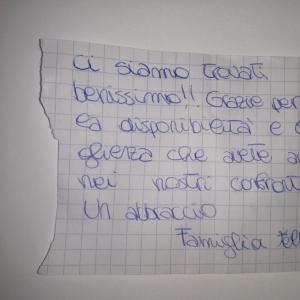 ci siamo trovati
benissimo!! Grazie per
la disponibilità e
che avete
nei nostri
Un abbraccio
Famiglia